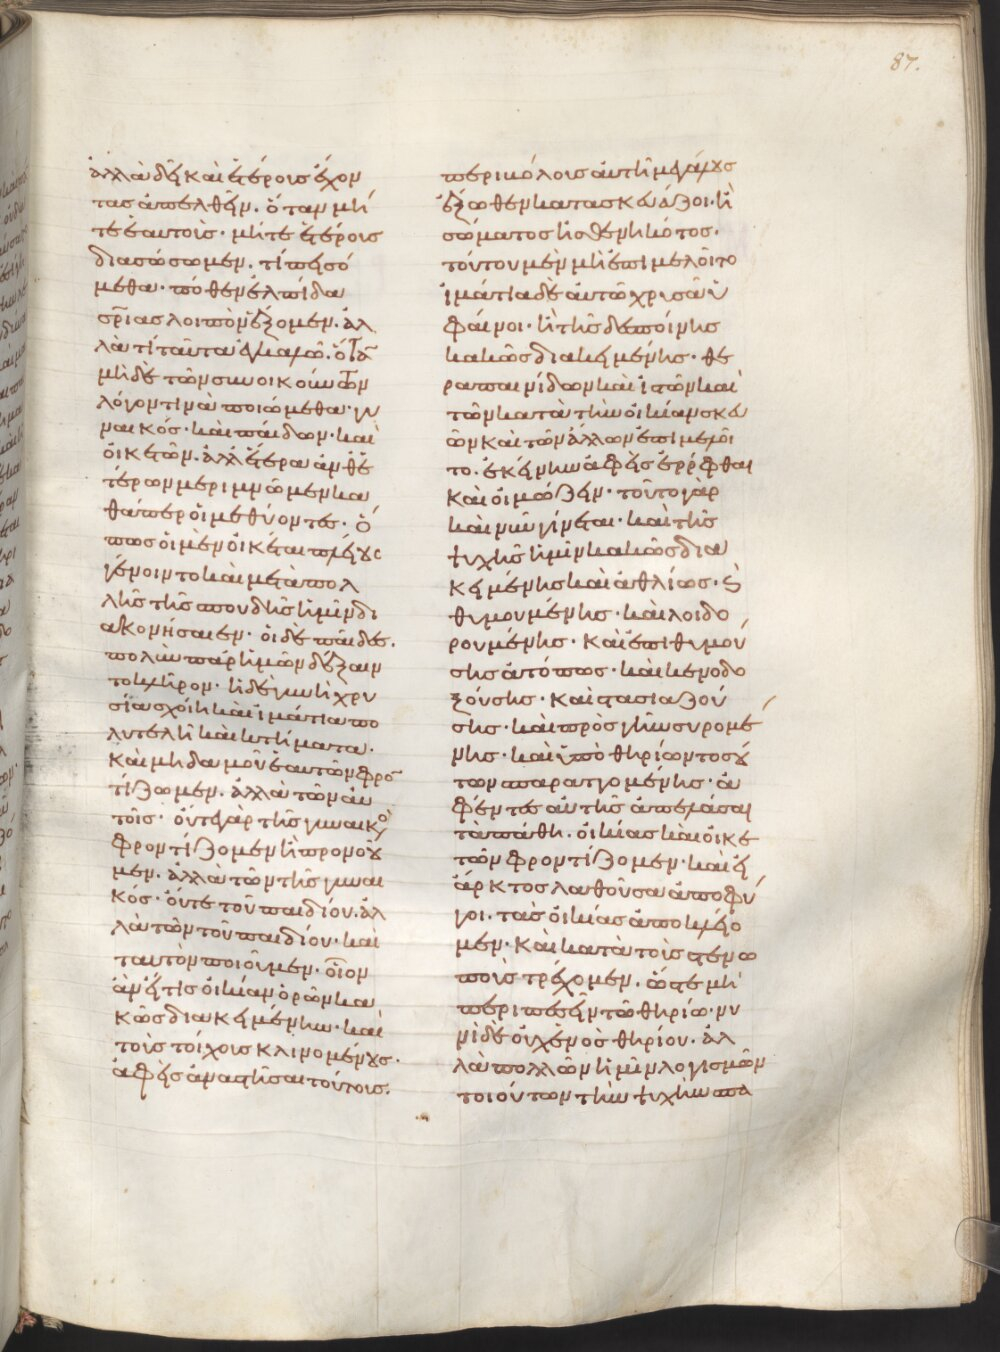 87.
ἀλλὰ δεῖ καὶ ἑτέροις ἔχον
τας ἀπελθεῖν. ὅταν μή
τε ἑαυτοῖς· μήτε ἑτέροις
διασώσωμεν. τί πεισό
μεθα· πόθεν ἐλπίδα
σρίας λοιπὸν ἕξομεν. ἀλ
λὰ τί ταῦτα ἐγκαλῶ. ὅταν
μηδὲ τῶν συνοικούντων
λόγον τινὰ ποιώμεθα· γυ
ναικός· καὶ παίδων· καὶ
οἰκετῶν. ἀλλ' ἕτερα ἀνθ' ἑ
τέρων μεριμνῶμεν κα
θάπερ οἱ μεθύοντες· ὅ
πως οἱ μὲν οἰκέται πλείους
γένοιντο καὶ μετὰ πολ
λῆς τῆς σπουδῆς ἡμῖν δι
ακονήσαιεν· οἱ δὲ παῖδες.
πολὺν παρ ἡμῶν δέξαιν
το κλῆρον· ἡ δὲ γυνὴ χρυ
σία σχοίη καὶ ἱμάτια πο
λυτελῆ καὶ κτήματα·
καὶ μηδαμοῦ ἑαυτῶν φρο
τίζωμεν. ἀλλὰ τῶν αὐ
τοῖς· οὔτε γὰρ τῆς γυναικὸ
φροντίζομεν ἢ προνοού
μεν. ἀλλὰ τῶν τῆς γυναι
κός· οὔτε τοῦ παιδίου. ἀλ
λὰ τῶν τοῦ παιδίου· καὶ
ταυτὸν ποιοῦμεν· οἷον
ἂν εἴ τις οἰκίαν ὁρῶν κα
κῶς διακειμένην· καὶ
τοὺς τοίχους κλινομένους·
ἀφεὶς ἀναστῆσαι τούτους.
περιβόλους αὐτῆ μεγάλους
ἔξωθεν κατασκευάζοι· ἢ
σώματος ἠσθενηκότος·
τούτου μὲν μὴ ἐπιμελοῖτο
ἱμάτια δὲ αὐτῶ χρυσᾶ ὑ
φαίνοι· ἢ τῆς δεσποίνης
κακῶς διακειμένης· θε
ραπαινίδων καὶ ἱστῶν καὶ
τῶν κατὰ τὴν οἰκίαν σκευ
ῶν καὶ τῶν ἄλλων ἐπιμελοῖ
το. ἐκείνην ἀφεὶς ἐρρίφθαι
καὶ οἰμώζειν· τοῦτο γὰρ
καὶ νῦν γίνεται· καὶ τῆς
ψυχῆς ἡμῖν κακῶς δια
κειμένης καὶ ἀθλίως· ἐ
θυμουμένης· καὶ λοιδο
ρουμένης· καὶ ἐπιθυμού
σης ἀτόπως· καὶ κενοδο
ξούσης· καὶ στασιαζού
σης· καὶ πρὸς γῆν συρομέ
νης· καὶ ὑπὸ θηρίων τοσού
των σπαραττομένης· ἀ
φέντες αὐτῆς ἀπελάσαι
τὰ πάθη. οἰκίας καὶ οἰκε
τῶν φροντίζομεν· καὶ εἰ
ἄρκτος λαθοῦσα ἀποφύ
γοι. τὰς οἰκίας ἀποκλείο
μεν· καὶ κατὰ τοὺς στενω
ποὺς τρέχομεν. ὥστε μὴ
περιπεσεῖν τῶ θηρίω· νυ
νὶ δὲ οὐχ ἑνὸς θηρίου. ἀλ
λὰ πολλῶν ἡμῖν λογισμῶν
τοιούτων τὴν ψυχὴν σπα